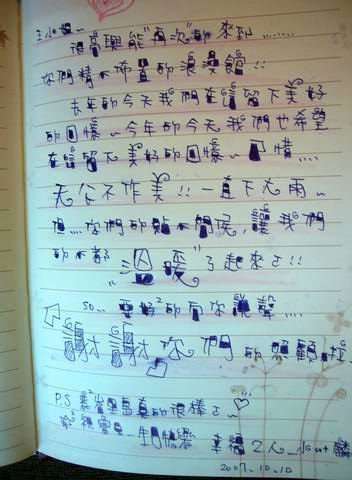 王小姐~
很高興能"再次"的來到………
你們精心佈置的浪漫館!!
去年的今天我們在這留下美好
的回憶~今年的今天我們也希望
在這留下美好的回憶~可惜….
天公不作美!!一直下大雨~
但…你們的貼心問候,讓我們
的心都
"溫暖"了起來了!!
so… 要好2的向你說聲….
謝謝你們的照顧
P.S 真的很棒了~
生日快樂 幸福2人~
2007.10.10